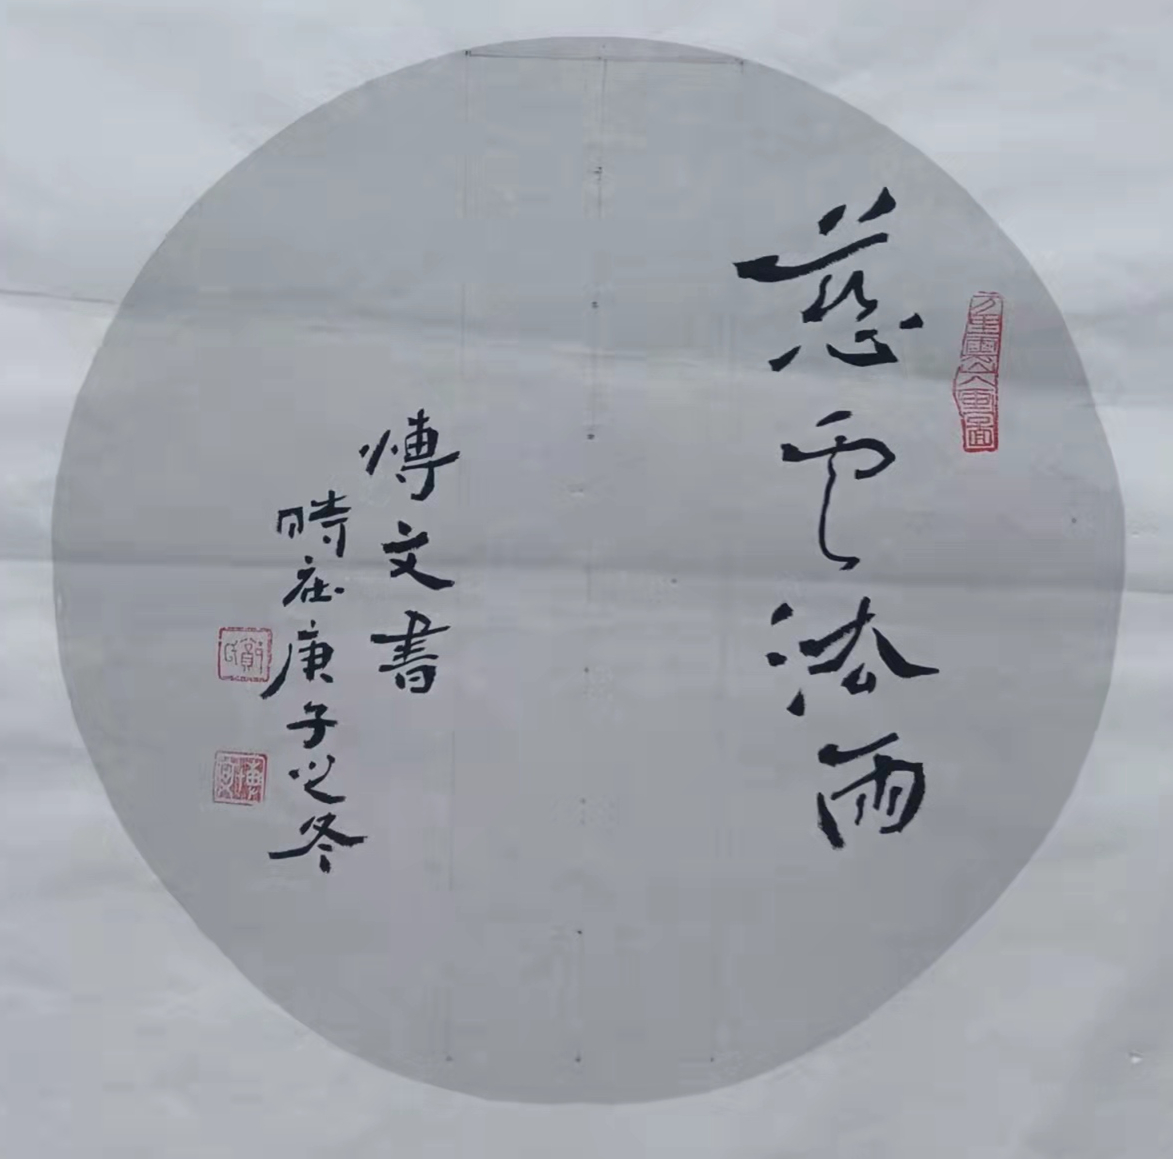 慈雲法雨
博文書
時在庚子之冬